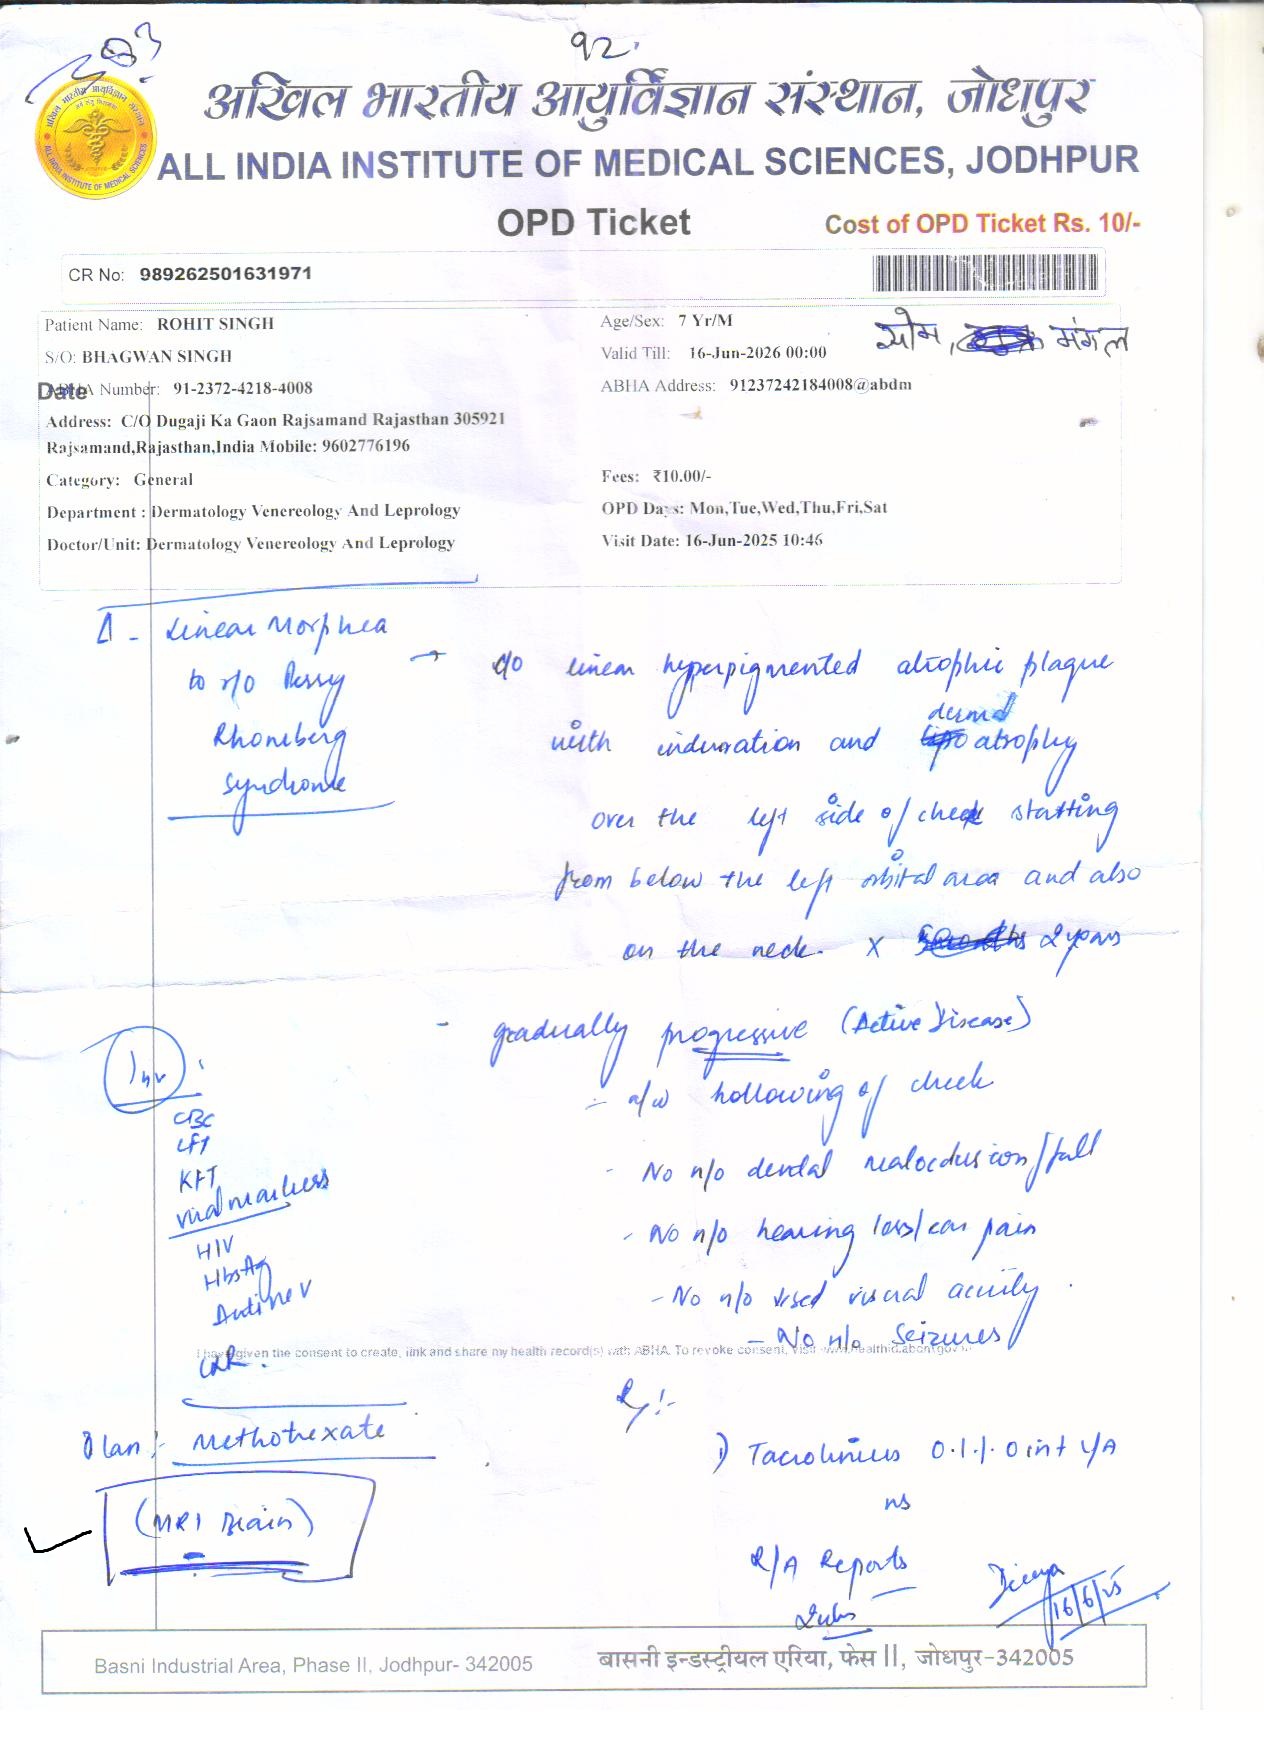 92
अखिल भारतीय आयुर्विज्ञान संस्थान, जोधपुर
ALL INDIA INSTITUTE OF MEDICAL SCIENCES, JODHPUR
OPD Ticket
Cost of OPD Ticket Rs. 10/-
CR No: 989262501631971
Patient Name: ROHIT SINGH
Age/Sex: 7 Yr/M
सोम, मंगल
S/O: BHAGWAN SINGH
Valid Till: 16-Jun-2026 00:00
Date
ABHA Number: 91-2372-4218-4008
ABHA Address: 91237242184008@abdm
Address: C/O Dugaji Ka Gaon Rajsamand Rajasthan 305921
Rajsamand,Rajasthan,India Mobile: 9602776196
Category: General
Fees: ₹10.00/-
Department : Dermatology Venereology And Leprology
OPD Days: Mon,Tue,Wed,Thu,Fri,Sat
Doctor/Unit: Dermatology Venereology And Leprology
Visit Date: 16-Jun-2025 10:46
Δ - Linear Morphea
to r/o Parry
Rhomberg
syndrome
→ c/o linear hyperpigmented atrophic plaque
with induration and dermal atrophy
over the left side of cheek starting
from below the left orbital area and also
on the neck. x 2 years
- gradually progressive (Active Disease)
- a/w hollowing of cheek
- No h/o dental malocclusion/fall
- No h/o hearing loss/ear pain
- No h/o visual acuity.
- No h/o seizures
Inv:
CBC
LFT
KFT
viral markers
HIV
HbsAg
Anti HCV
CXR.
I have given the consent to create, link and share my health record(s) with ABHA. To revoke consent, visit
Plan:- Methotrexate
(MRI Brain)
Rx:-
1) Tacrolimus 0.1% oint L/A
R/A Reports
16/6/25
Basni Industrial Area, Phase II, Jodhpur- 342005
बासनी इन्डस्ट्रीयल एरिया, फेस II, जोधपुर-342005